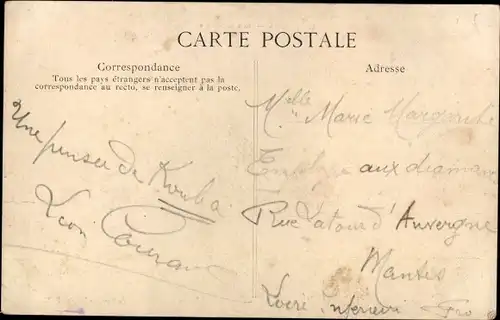 CARTE POSTALE
Correspondance
Tous les pays étrangers n'acceptent pas la
correspondance au recto, se renseigner à la poste.
Une pensée de Kouba
Léon
Adresse
Melle Marie
aux
Rue Latour d'Auvergne
Nantes
Loire Inférieure